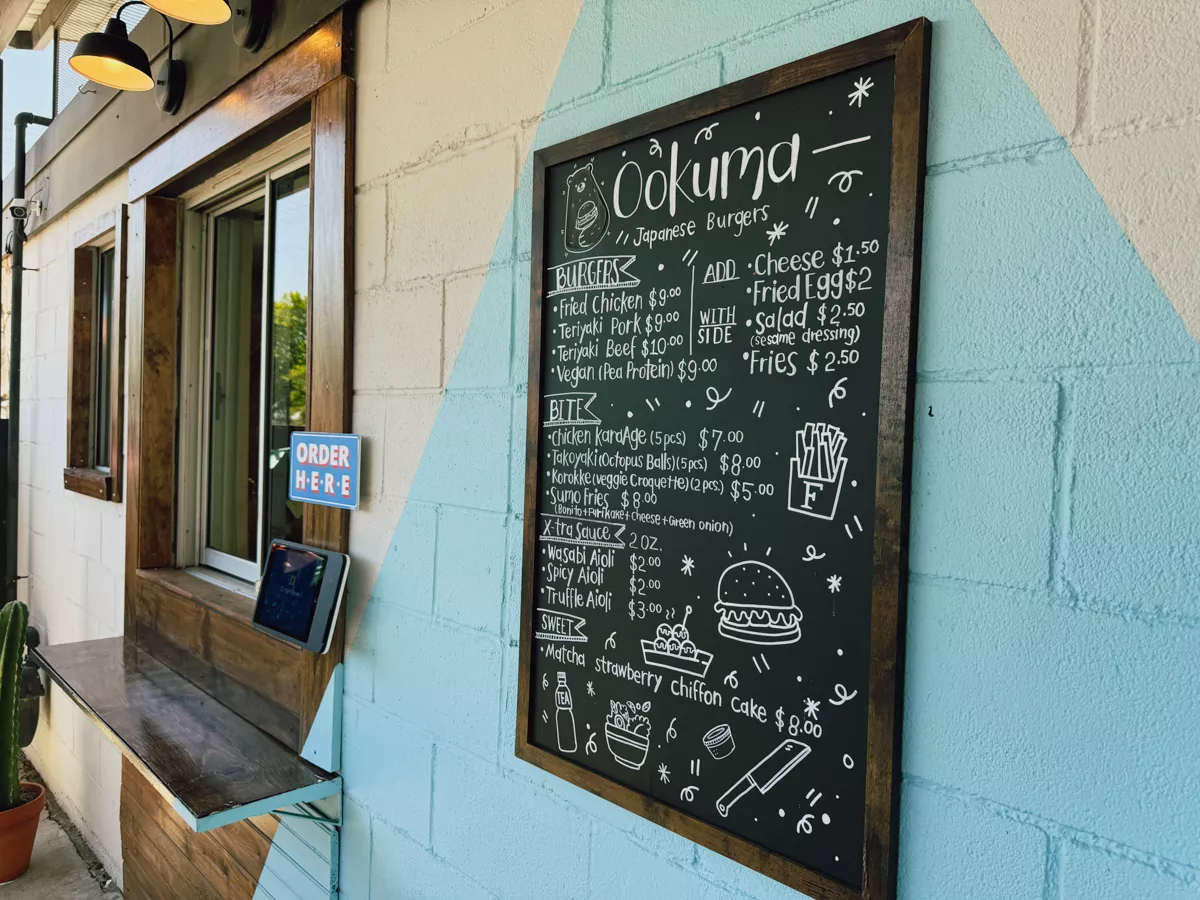 ORDER
H·E·R·E
Ookuma
Japanese Burgers
BURGERS
• Fried Chicken $9.00
• Teriyaki Pork $9.00
• Teriyaki Beef $10.00
• Vegan (Pea Protein) $9.00
ADD
• Cheese $1.50
• Fried Egg $2
WITH
SIDE
• Salad $2.50
(sesame dressing)
• Fries $2.50
BITE
• Chicken KaraAge (5pcs) $7.00
• Takoyaki (Octopus Balls) (5pcs) $8.00
• Korokke (veggie Croquette) (2pcs.) $5.00
• Sumo Fries $8.00
(Bonito + Furikake + Cheese + Green onion)
F
X-tra Sauce 2 OZ.
• Wasabi Aioli $2.00
• Spicy Aioli $2.00
• Truffle Aioli $3.00
SWEET
• Matcha strawberry chiffon cake $8.00
TEA